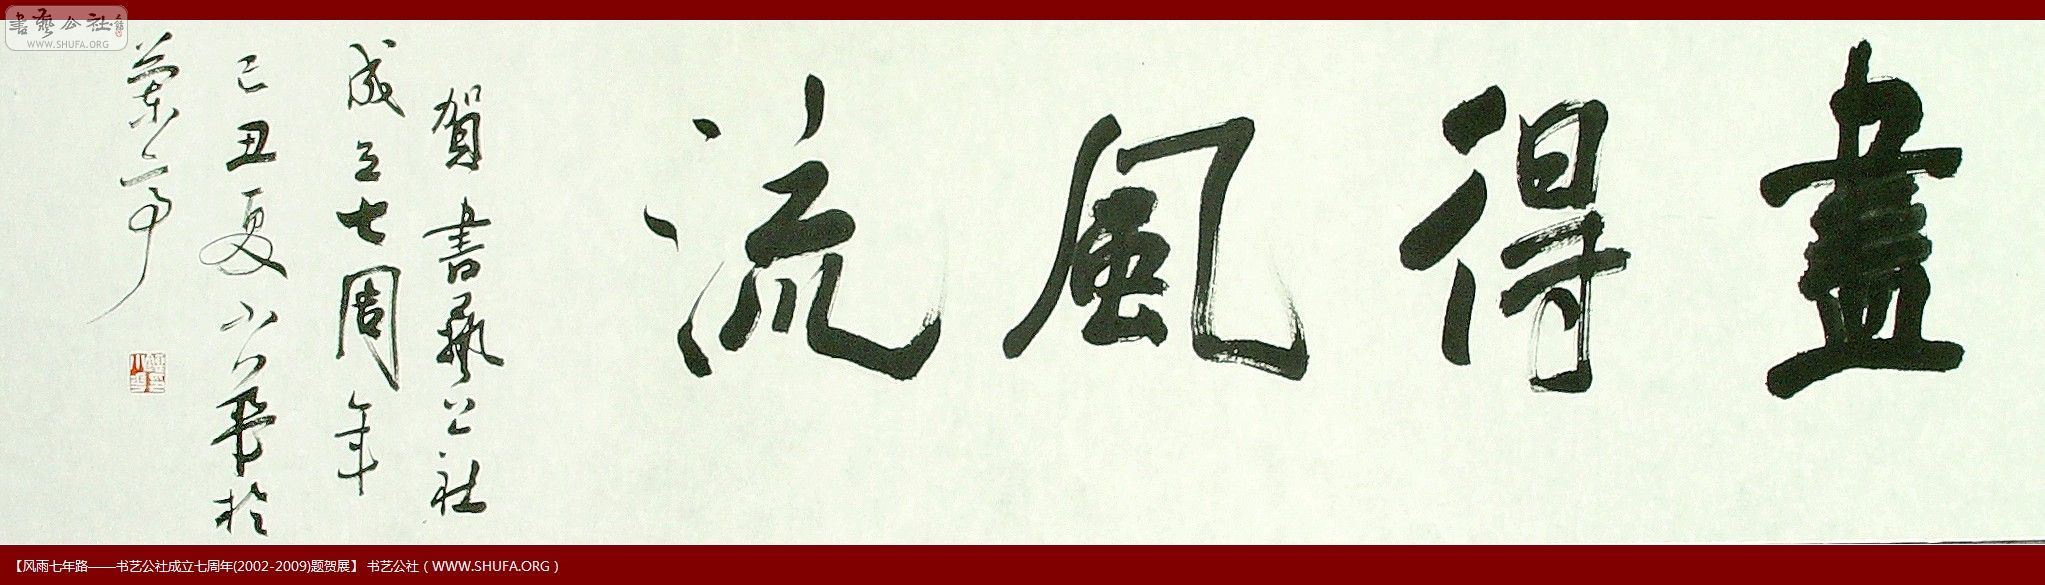 盡得風流
賀書藝公社
成立七周年
己丑夏小華於
蘭亭
書藝公社
WWW.SHUFA.ORG
【风雨七年路——书艺公社成立七周年(2002-2009)题贺展】 书艺公社 ( WWW.SHUFA.ORG )